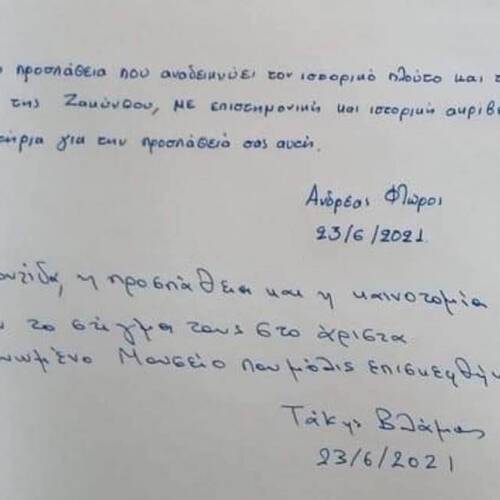 προσπάθεια που αναδεικνύει τον ιστορικό πλούτο και τ
της Ζακύνθου, με επιστημονική και ιστορική ακρίβε
τήρια για την προσπάθειά σας αυτή.
Ανδρέας Φλώροι
23/6/2021
οντίδα, η προσπάθεια και η καινοτομία
το στίγμα τους στο άριστα
νωμένο Μουσείο που μόλις επισκεφθήκ
Τάκης Βλάμης
23/6/2021